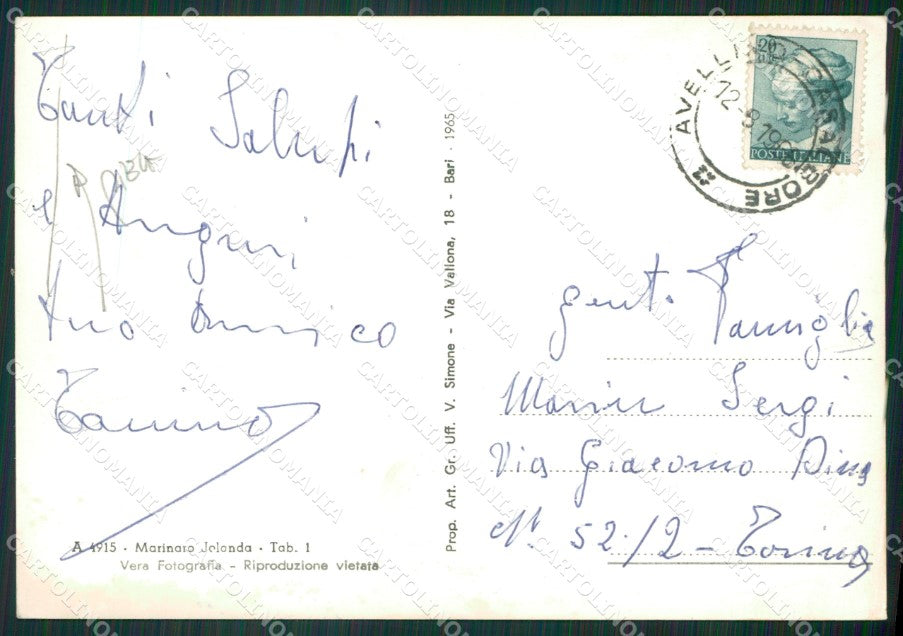 Tanti Saluti
e Auguri
tuo Amico
Tanino
A 4915 - Marinaro Jolanda - Tab. 1
Vera Fotografia - Riproduzione vietata
Prop. Art. Gr. Uff. V. Simone - Via Vallona, 18 - Bari - 1965
20
POSTE ITALIANE
AVELLINO
12-8-19
Gent. Famiglia
Sergi
Via Giacomo Dina
N° 52/2 - Torino
CARTOLINOMANIA